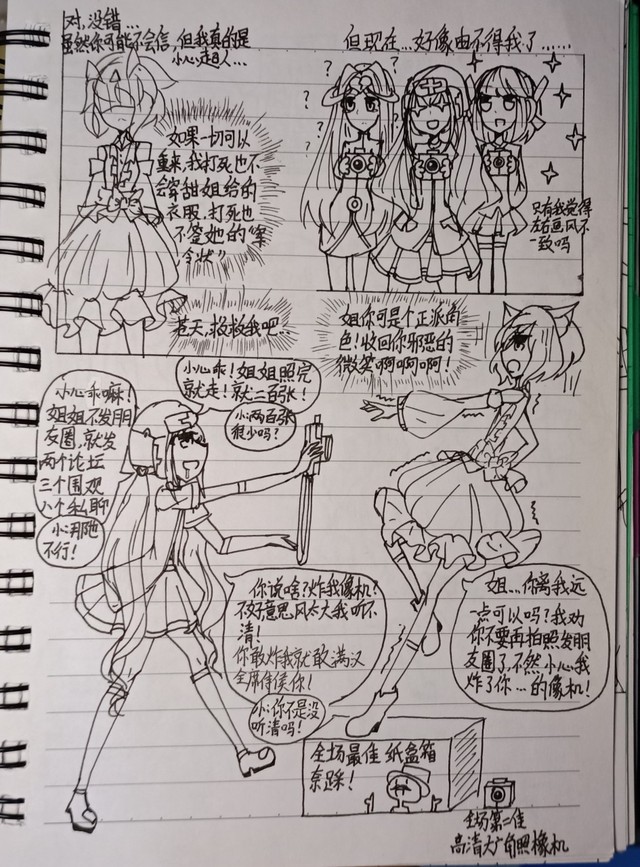 对,没错...
虽然你可能不会信,但我真的是
小心超人...
如果一切可以
重来,我打死也不
会穿甜姐给的
衣服,打死也
不签她的“军
令状”
苍天,救救我吧...
但现在...好像由不得我了......
? ? ? ? ? ?
只有我觉得
左右画风不
一致吗
姐你可是个正派角
色!收回你邪恶的
微笑啊啊啊啊!
小心乖!姐姐照完
就走!就二百张!
小:两百张
很少吗?
小心乖嘛!
姐姐不发朋
友圈,就发
两个论坛
三个围观
八个私聊
小:那也
不行!
你说啥?炸我像机?
不好意思风太大我听不
清!
你敢炸我就敢满汉
全席侍侯你!
小:你不是没
听清吗!
姐...你离我远
一点可以吗?我劝
你不要再拍照发朋
友圈了,不然小心我
炸了你...的像机!
全场最佳 纸盒箱
奈踩!
全场第二佳
高清大广角照橡机